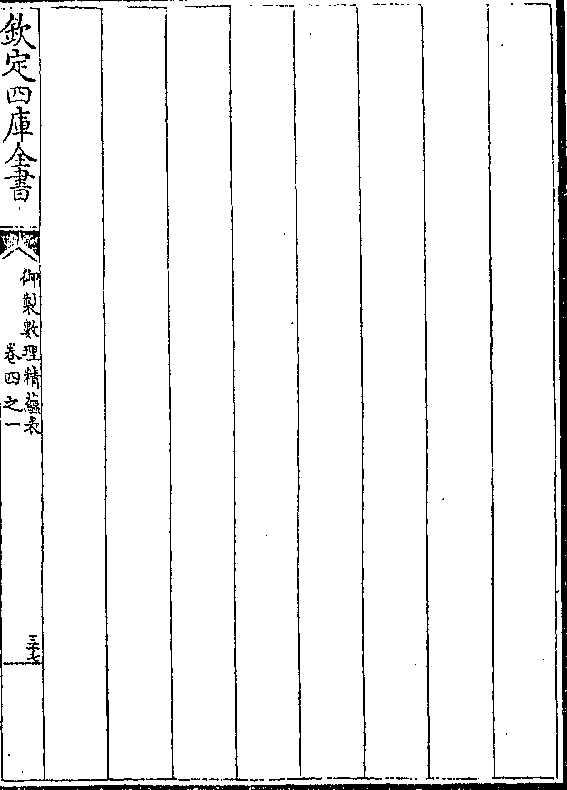 欽定四庫全書
御製數理精蘊表
卷四之一
三十七